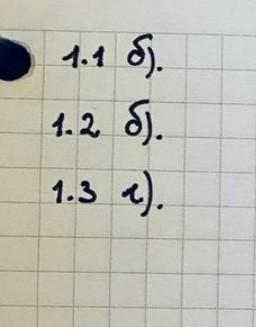 1.1 б).
1.2 б).
1.3 г).